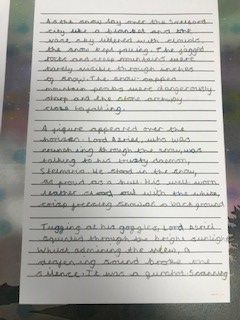 As the snow lay over the Svalbard
city like a blanket and the
vast sky littered with clouds,
the snow kept falling. The jagged
rocks and steep mountains were
barely visible through inches
of snow. The snow-capped
mountain peaks were dangerously
sharp and the stone archway
close to falling.
A figure appeared over the
horizon. Lord Asriel, who was
crunching through the snow, was
talking to his trusty daemon,
Stelmaria. He stood in the snow,
as proud as a bull. His well worn
leather stood out with the white,
crisp freezing snow as a background
Tugging at his goggles, Lord Asriel
squinted through the bright sunlight
Whilst admiring the view, a
deafening sound broke the
silence. It was a gunshot. Scanning